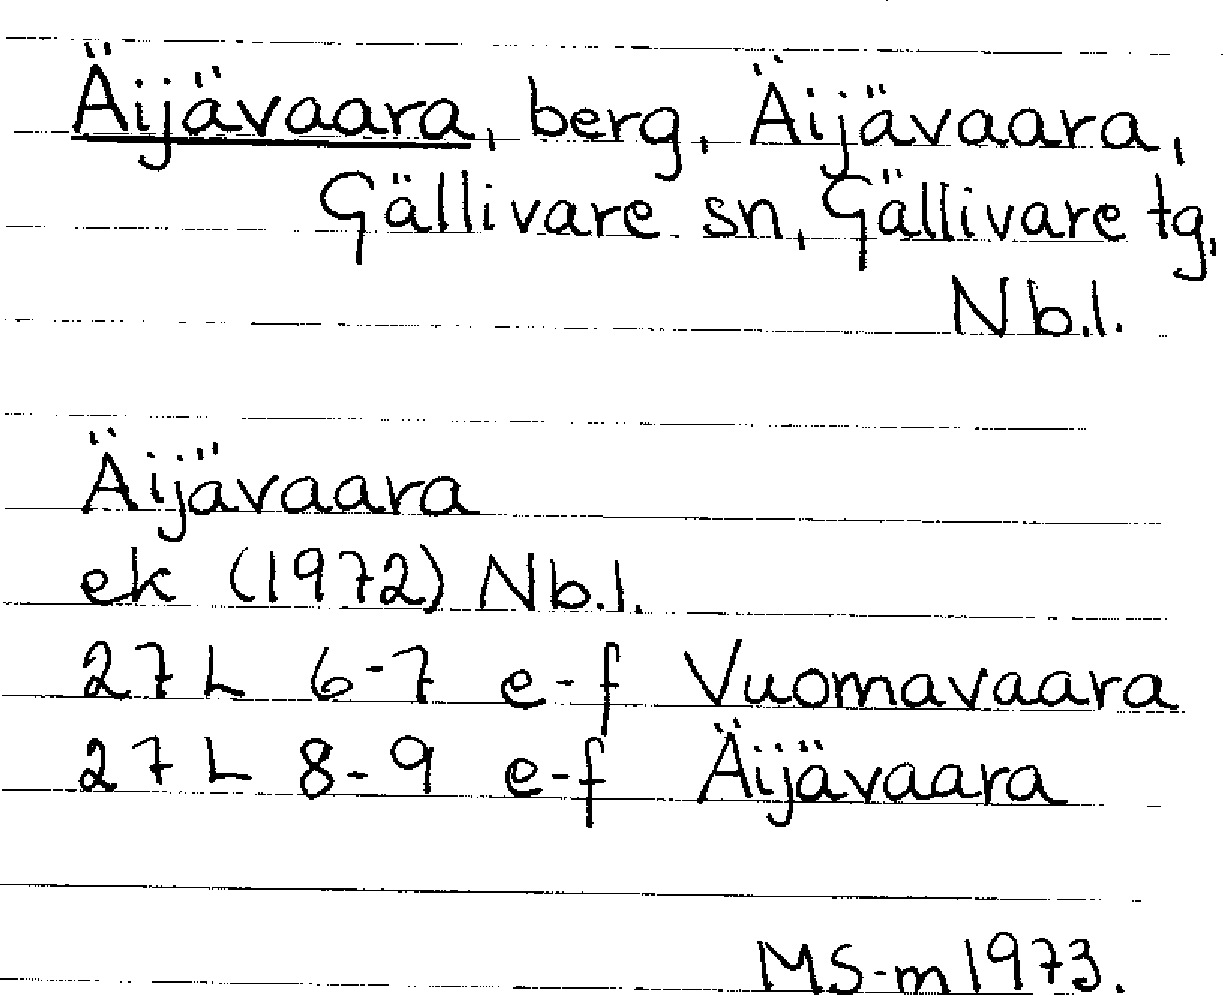 Äijävaara, berg, Äijävaara,
Gällivare sn, Gällivare tg,
Nb.l.
Äijävaara
ek (1972) Nb.l.
27 L 6-7 e-f Vuomavaara
27 L 8-9 e-f Äijävaara
MS-m 1973.